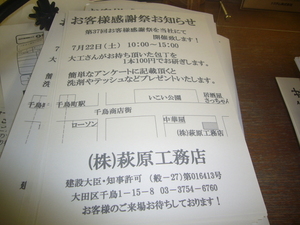 お客様感謝祭お知らせ
第37回お客様感謝祭を当社にて
開催致します！
7月22日(土) 10:00～15:00
大工さんがお持ち頂いた包丁を
1本100円でお研ぎします。
簡単なアンケートに記載頂くと
洗剤やテッシュなどプレゼントいたします。
千鳥町駅
いこい公園
居酒屋
さっちゃん
千鳥商店街
ローソン
中華屋
(株)萩原工務店
(株)萩原工務店
建設大臣・知事許可 (般－27)第016413号
大田区千鳥1－15－8 03－3754－6760
お客様のご来場お待ちしております！